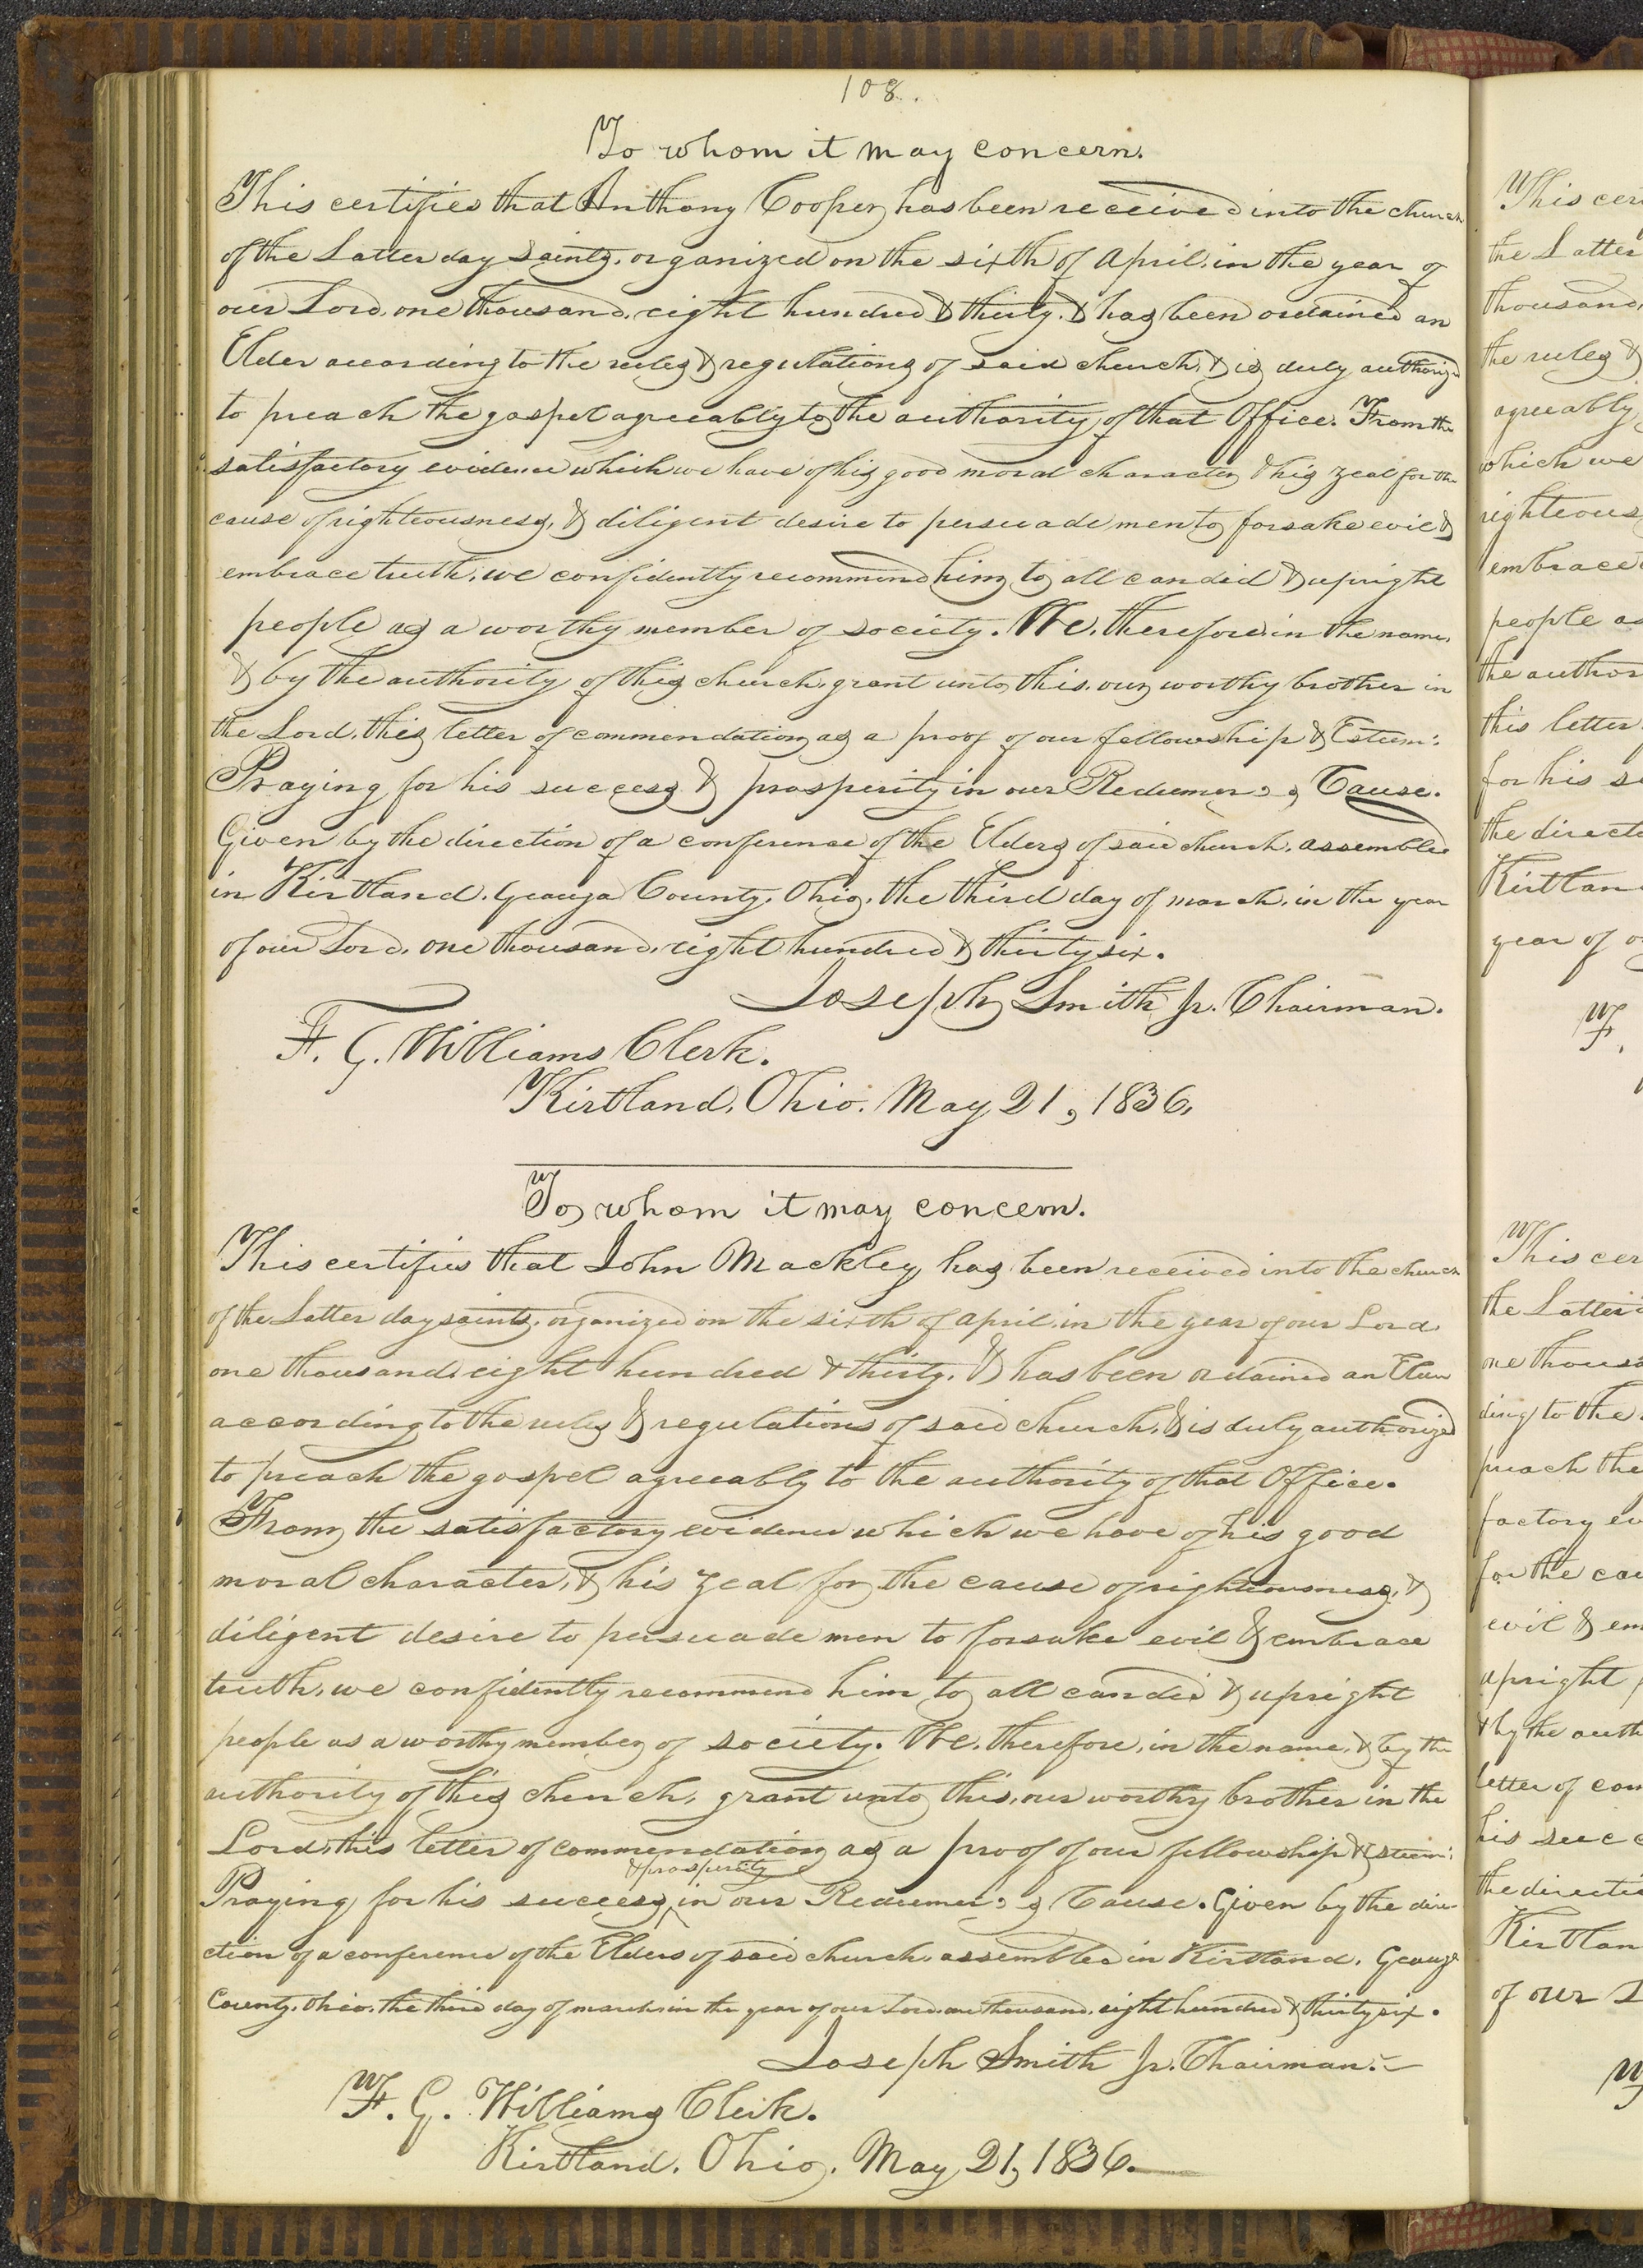 108.
To whom it may concern.
This certifies that Anthony Cooper has been received into the church
of the Latter day saints, organized on the sixth of April, in the year of
our Lord, one thousand, eight hundred & thirty, & has been ordained an
Elder according to the rules & regulations of said church, & is duly authorized
to preach the gospel agreeably to the authority of that Office. From the
satisfactory evidence which we have of his good moral character, & his zeal for the
cause of righteousness, & diligent desire to persuade men to forsake evil &
embrace truth, we confidently recommend him to all candid & upright
people as a worthy member of society. We, therefore, in the name,
& by the authority of this church, grant unto this, our worthy brother in
the Lord, this letter of commendation as a proof of our fellowship & Esteem:
Praying for his success & prosperity in our Redeemer's Cause.
Given by the direction of a conference of the Elders of said church, assembled
in Kirtland, Geauga County, Ohio, the third day of march, in the year
of our Lord, one thousand, eight hundred & thirty six.
Joseph Smith Jr. Chairman.
F. G. Williams Clerk.
Kirtland, Ohio. May 21, 1836.
To whom it may concern.
This certifies that John Mackley has been received into the church
of the Latter day saints, organized on the sixth of april, in the year of our Lord
one thousand, eight hundred & thirty, & has been ordained an Elder
according to the rules & regulations of said church, & is duly authorized
to preach the gospel agreeably to the authority of that Office.
From the satisfactory evidence which we have of his good
moral character, & his zeal for the cause of righteousness, &
diligent desire to persuade men to forsake evil & embrace
truth, we confidently recommend him to all candid & upright
people as a worthy member of society. We, therefore, in the name, & by the
authority of this church, grant unto this, our worthy brother in the
Lord, this letter of commendation as a proof of our fellowship & esteem:
& prosperity
Praying for his success in our Redeemer's Cause. Given by the dire-
ction of a conference of the Elders of said church, assembled in Kirtland, Geauga
County, Ohio, the third day of march, in the year of our Lord, one thousand, eight hundred & thirty six.
Joseph Smith Jr. Chairman.
F. G. Williams Clerk.
Kirtland, Ohio, May 21, 1836.
This cer
the Latter
thousand,
the rules &
agreeably
which we
righteous
embrace
people as
the author
this letter
for his su
the directi
Kirtlan
year of o
F.
This cer
the Latter
one thousa
ding to the
preach the
factory ev
for the cau
evil & em
upright p
& by the auth
letter of com
his succ
the directi
Kirtlan
of our L